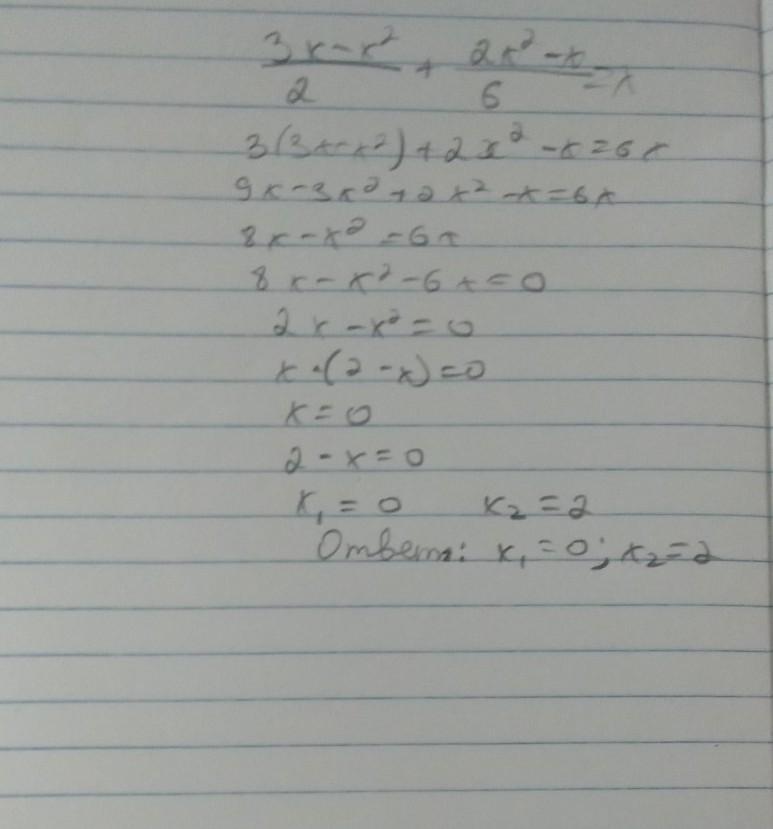 (3x-x²)/2 + (2x²-x)/6 = x
3(3x-x²)+2x²-x=6x
9x-3x²+2x²-x=6x
8x-x²=6x
8x-x²-6x=0
2x-x²=0
x·(2-x)=0
x=0
2-x=0
x₁=0 x₂=2
Ответ: x₁=0; x₂=2